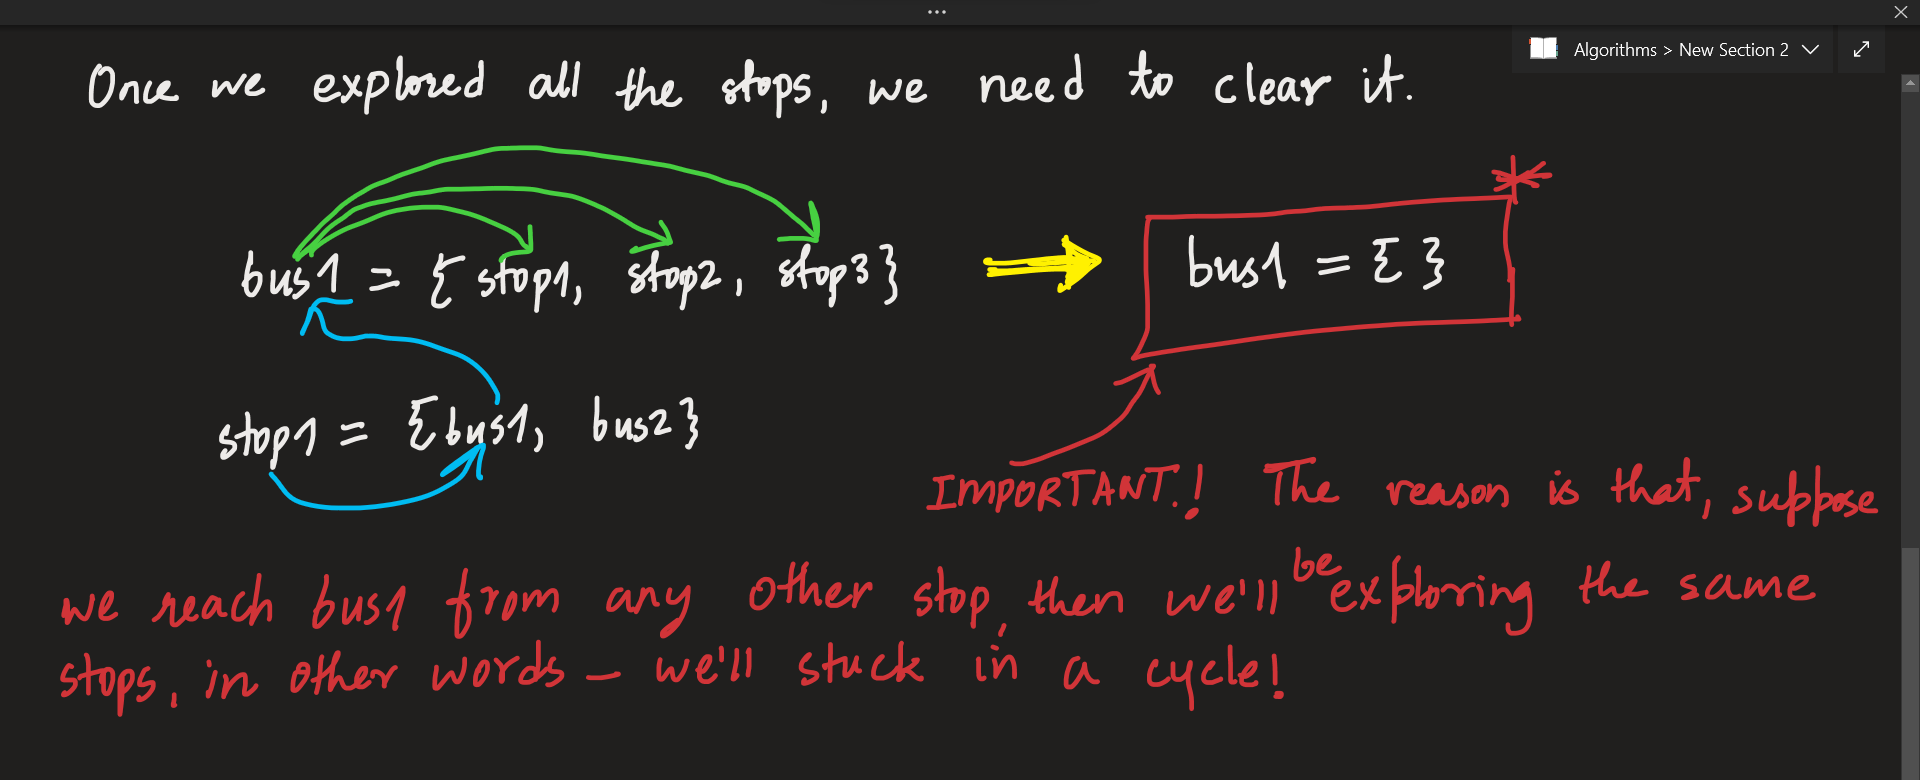 Algorithms > New Section 2
Once we explored all the stops, we need to clear it.
bus1 = { stop1, stop2, stop3 }
bus1 = { }
stop1 = { bus1, bus2 }
IMPORTANT.! The reason is that, suppose
we reach bus1 from any other stop, then we'll be exploring the same
stops, in other words – we'll stuck in a cycle!